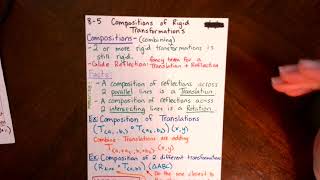 8-5 Compositions of Rigid
Transformation's
Compositions - (combining)
- 2 or more rigid transformations is
still rigid.
fancy term for a
- Glide Reflection: Translation + Reflection
Facts:
- A composition of reflections across
2 parallel lines is a Translation.
- A composition of reflections across
2 intersecting lines is a Rotation.
Ex: Composition of Translations
(T(a₁,b₁) ∘ T(a₂,b₂))(x,y)
Combine - Translations are adding
T(a₁+a₂, b₁+b₂)(x,y)
Ex: Composition of 2 different transformations
(ΔABC)
Do the one closest to